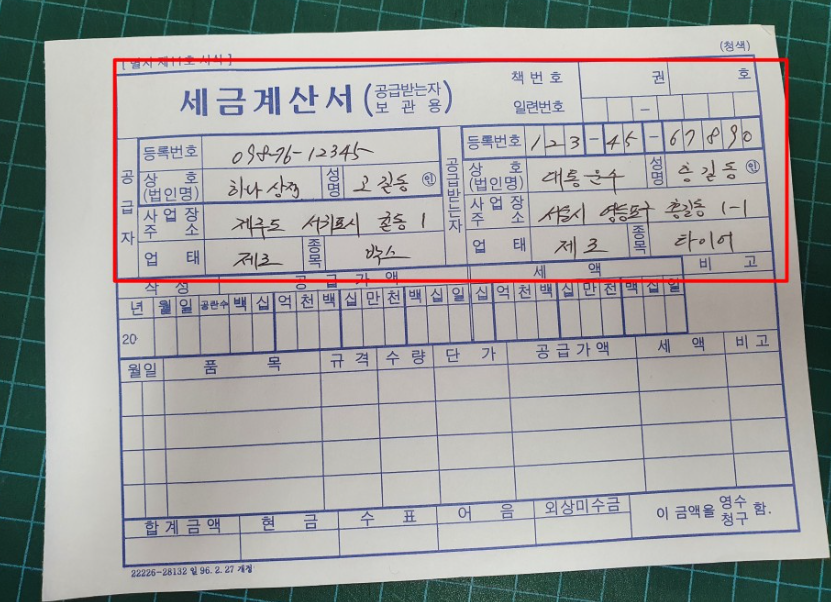 [ 별지 제11호 서식 ]
(청색)
세금계산서 (공급받는자 보관용)
책번호 권 호
일련번호 -
공급자
등록번호 098-76-12345
상호 (법인명) 하나상점 성명 고길동 인
사업장 주소 제주도 서귀포시 길동 1
업태 제조 종목 박스
공급받는자
등록번호 123-45-67890
상호 (법인명) 대통운수 성명 홍길동 인
사업장 주소 서울시 영등포구 홍길동 1-1
업태 제조 종목 타이어
작성 공급가액 세액 비고
년 월 일 공란수 백 십 억 천 백 십 만 천 백 십 일 십 억 천 백 십 만 천 백 십 일
20
월일 품목 규격 수량 단가 공급가액 세액 비고
합계금액 현금 수표 어음 외상미수금 이 금액을 영수 청구 함.
22226-28132 일 96. 2. 27 개정